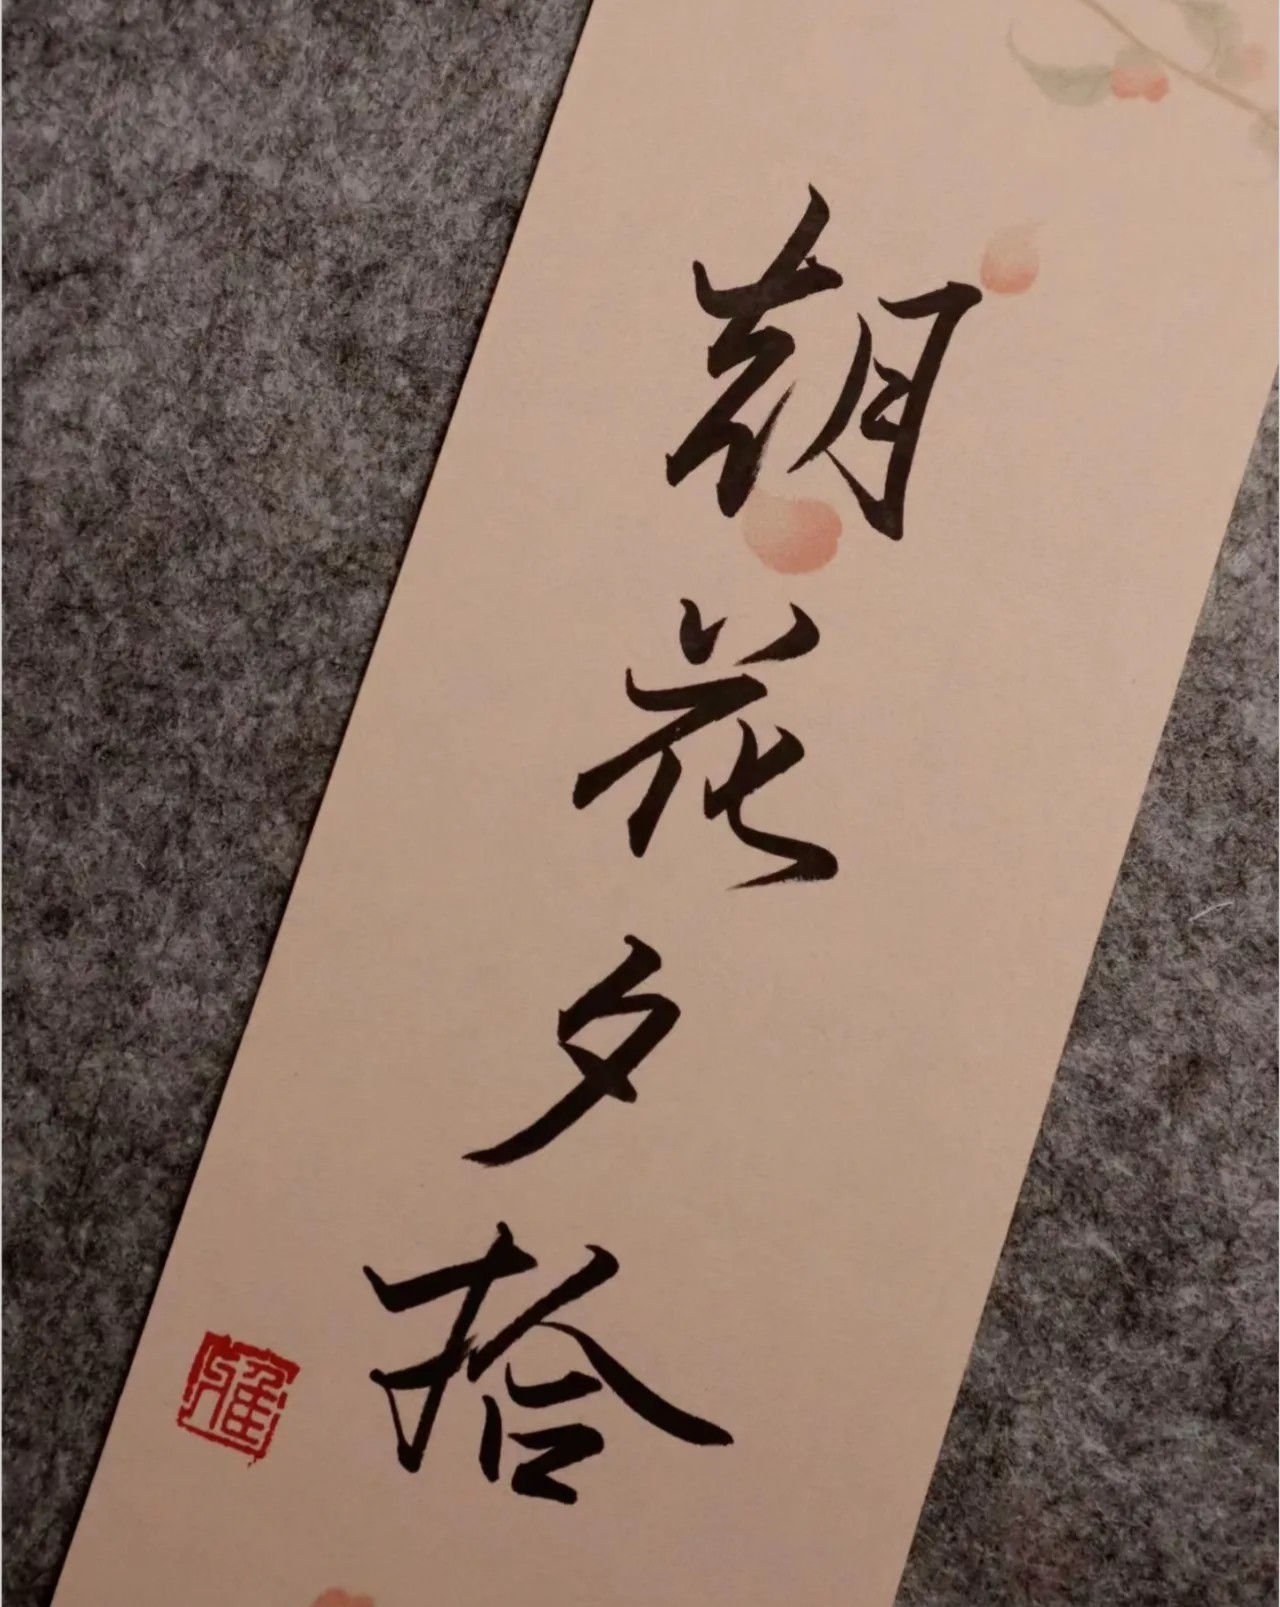 朝花夕拾
雅